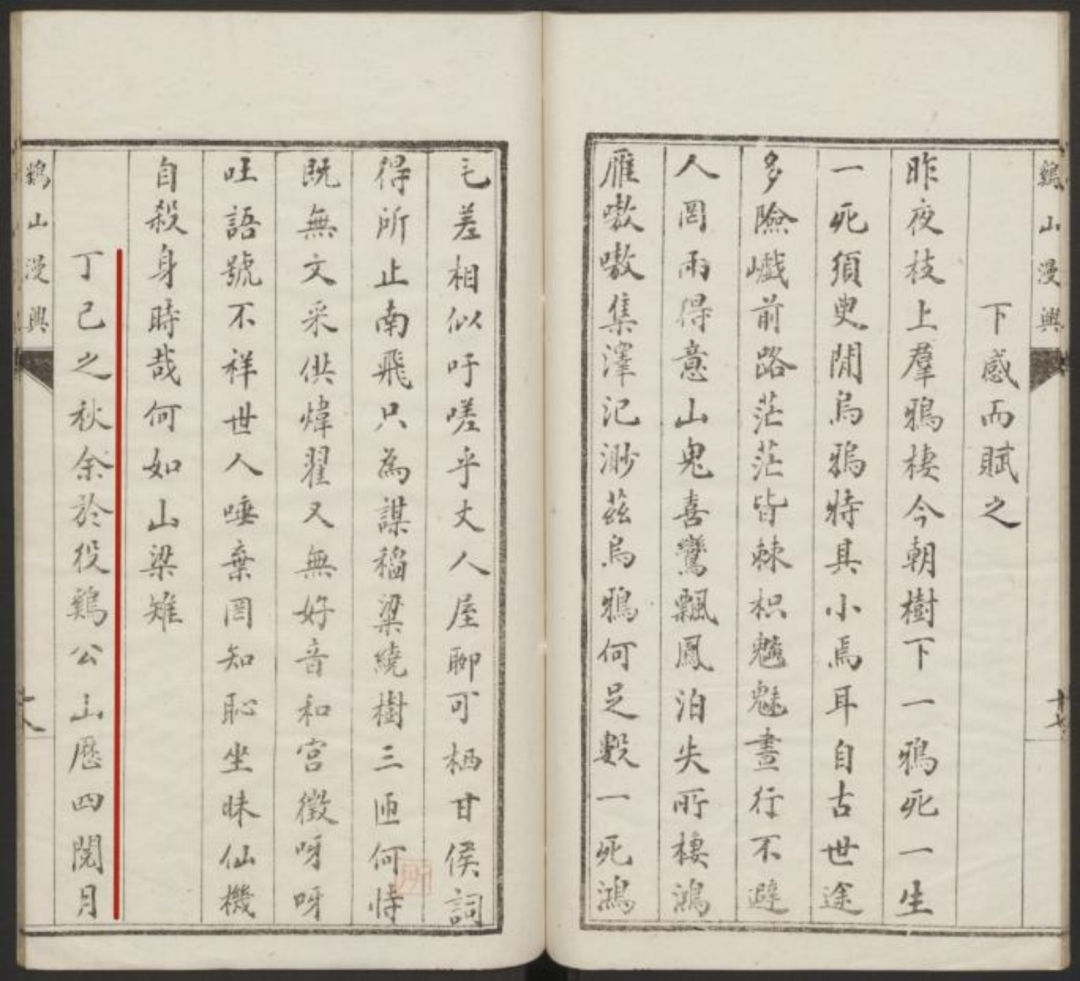 鷄山漫興
十七
下感而賦之
昨夜枝上羣鴉棲今朝樹下一鴉死一生
一死須臾間烏鴉特其小焉耳自古世途
多險巇前路茫茫皆棘枳魑魅晝行不避
人罔兩得意山鬼喜鸞飄鳳泊失所棲鴻
雁嗷嗷集澤汜渺茲烏鴉何足數一死鴻
毛差相似吁嗟乎丈人屋聊可栖甘侯詞
得所止南飛只為謀稻粱繞樹三匝何恃
既無文采供煒翟又無好音和宮徵呀呀
吐語號不祥世人唾棄罔知恥坐昧仙機
自殺身時哉何如山梁雉
丁巳之秋余於役鷄公山歷四閱月
鷄山漫興
十八